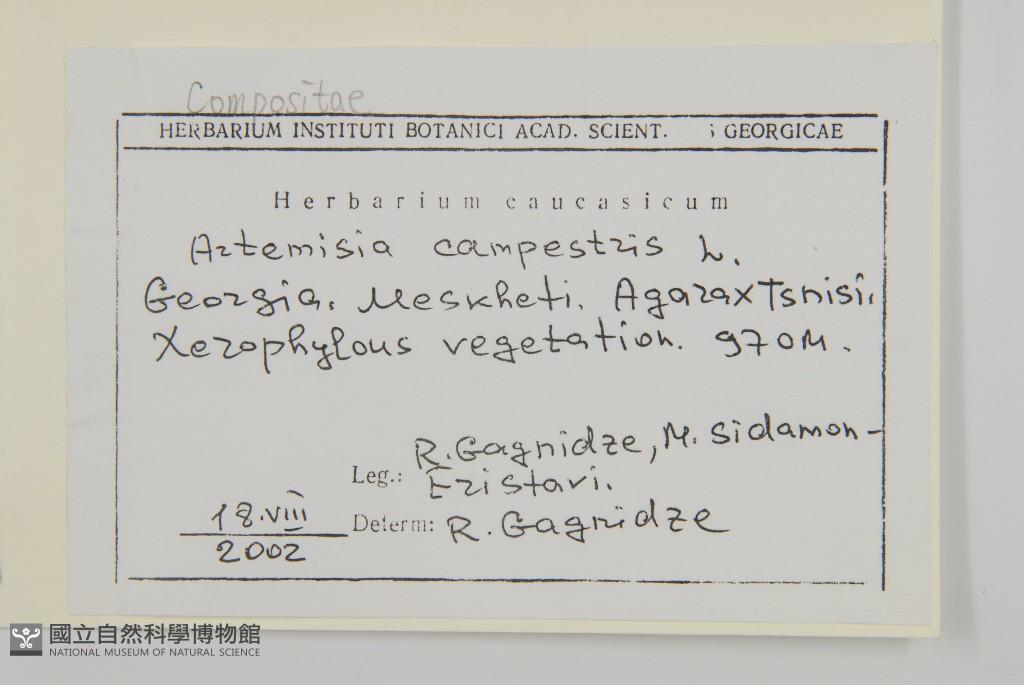 Compositae
HERBARIUM INSTITUTI BOTANICI ACAD. SCIENT. GEORGICAE
Herbarium caucasicum
Artemisia campestris L.
Georgia. Meskheti. AgaraxTsnisi.
Xerophylous vegetation. 970M.
R. Gagnidze, M. Sidamon-
Leg.: Eristavi.
18.VIII
Determ: R. Gagnidze
2002
國立自然科學博物館
NATIONAL MUSEUM OF NATURAL SCIENCE